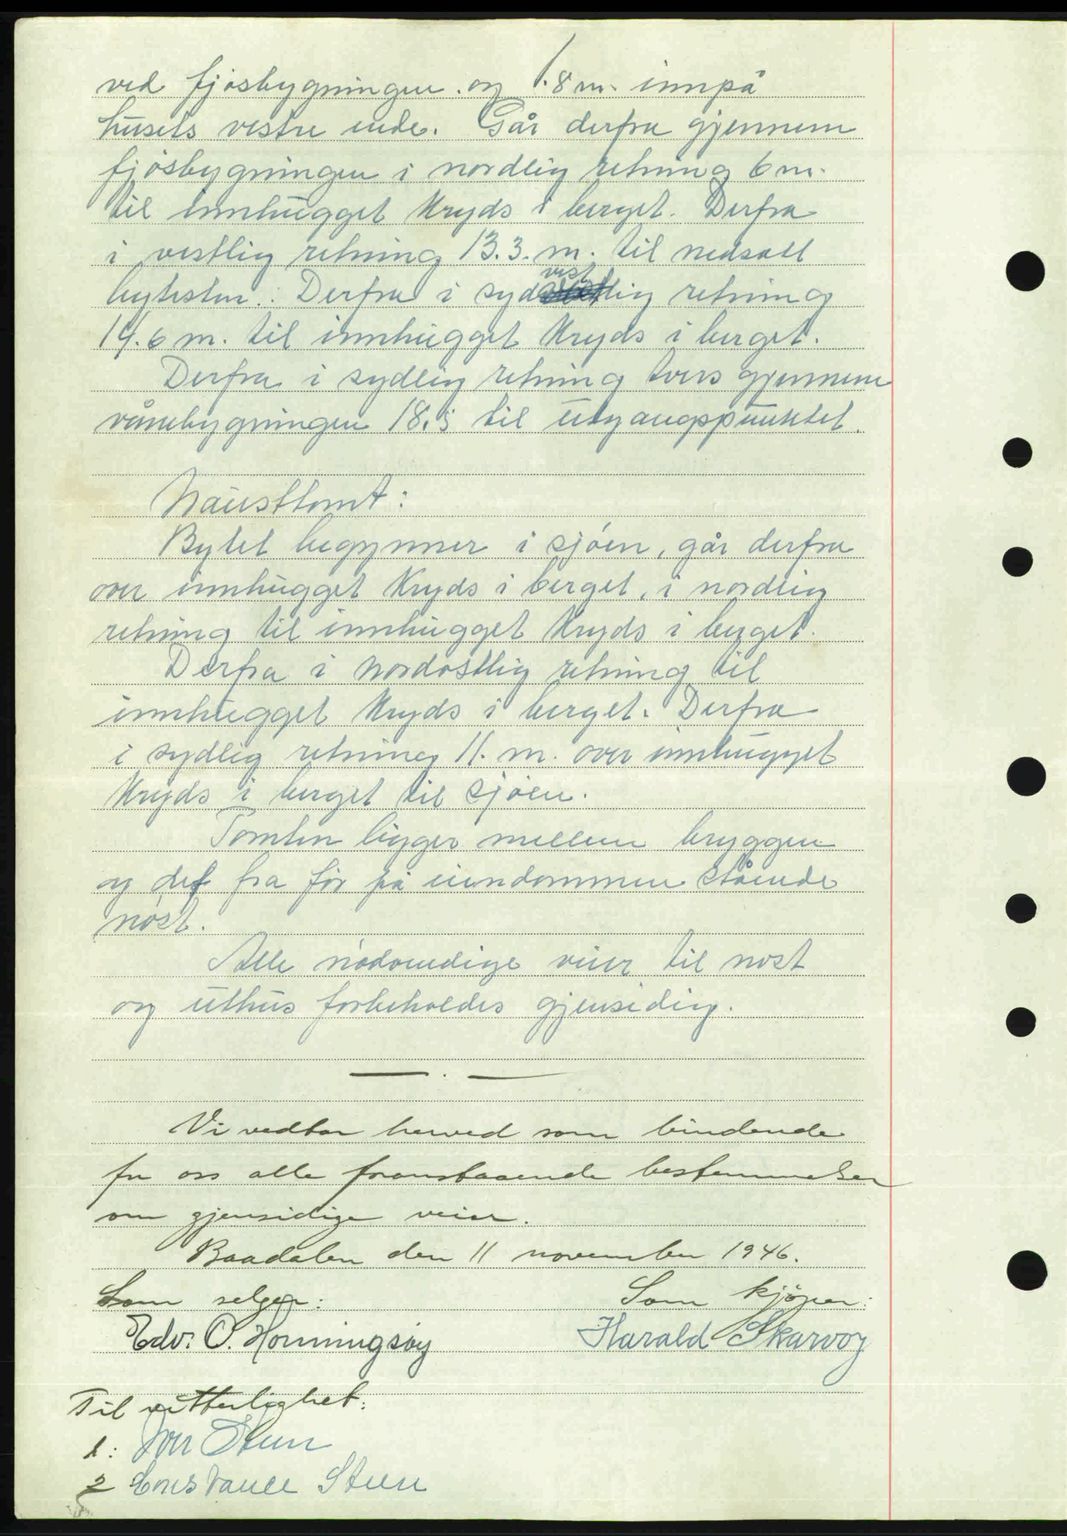 ved fjøsbygningen og 1.8 m. innpå
husets vestre ende. Går derfra gjennem
fjøsbygningen i nordlig retning 6 m.
til innhugget kryds i berget. Derfra
i vestlig retning 13.3. m. til nedsatt
bytesten. Derfra i sydvestlig retning
14.6 m. til innhugget kryds i berget.
Derfra i sydlig retning tvers gjennem
vånebygningen 18.5 til utgangspunktet.
Nausttomt:
Bytet begynner i sjøen, går derfra
over innhugget kryds i berget, i nordlig
retning til innhugget kryds i berget.
Derfra i nordostlig retning til
innhugget kryds i berget. Derfra
i sydlig retning 11. m. over innhugget
kryds i berget til sjøen.
Tomten ligger mellem bryggen
og det fra før på eiendommen stående
nøst.
Alle nødvendige veier til nøst
og uthus forbeholdes gjensidig.
Vi vedtar herved som bindende
for oss alle franstaaende bestemmelser
om gjensidige veier.
Baadalen den 11 november 1946.
Som selger: Som kjøper:
Edv. O. Honningsøy Harald Skarvøy
Til vitterlighet:
1: Iver Steen
2 Constance Steen